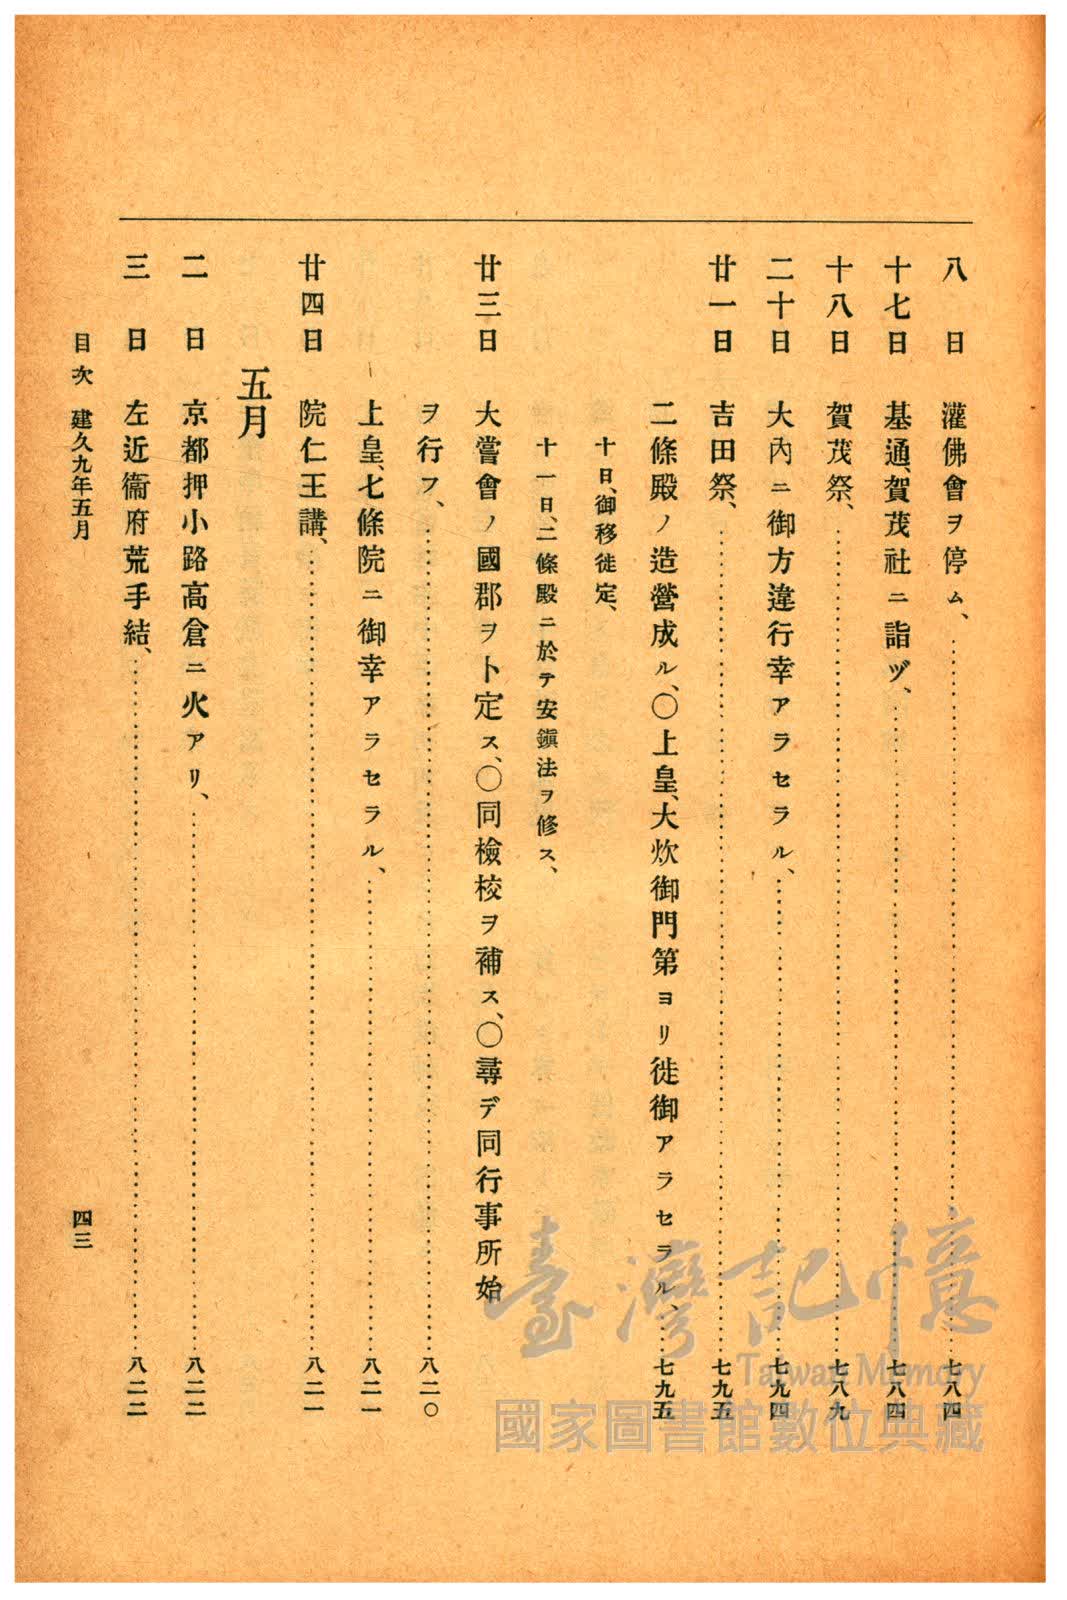 八日 灌佛會ヲ停ム、 七八四
十七日 基通、賀茂社ニ詣ヅ、 七八四
十八日 賀茂祭、 七八九
二十日 大內ニ御方違行幸アラセラル、 七九四
廿一日 吉田祭、 七九五
二條殿ノ造營成ル、〇上皇、大炊御門第ヨリ徙御アラセラル、 七九五
十日、御移徙定、
十一日、二條殿ニ於テ安鎭法ヲ修ス、
廿三日 大嘗會ノ國郡ヲト定ス、〇同檢校ヲ補ス、〇尋デ同行事所始
ヲ行フ、 八二〇
上皇、七條院ニ御幸アラセラル、 八二一
廿四日 院仁王講、 八二一
五月
二日 京都押小路高倉ニ火アリ、 八二二
三日 左近衞府荒手結、 八二二
目次 建久九年五月 四三
臺灣記憶
Taiwan Memory
國家圖書館數位典藏